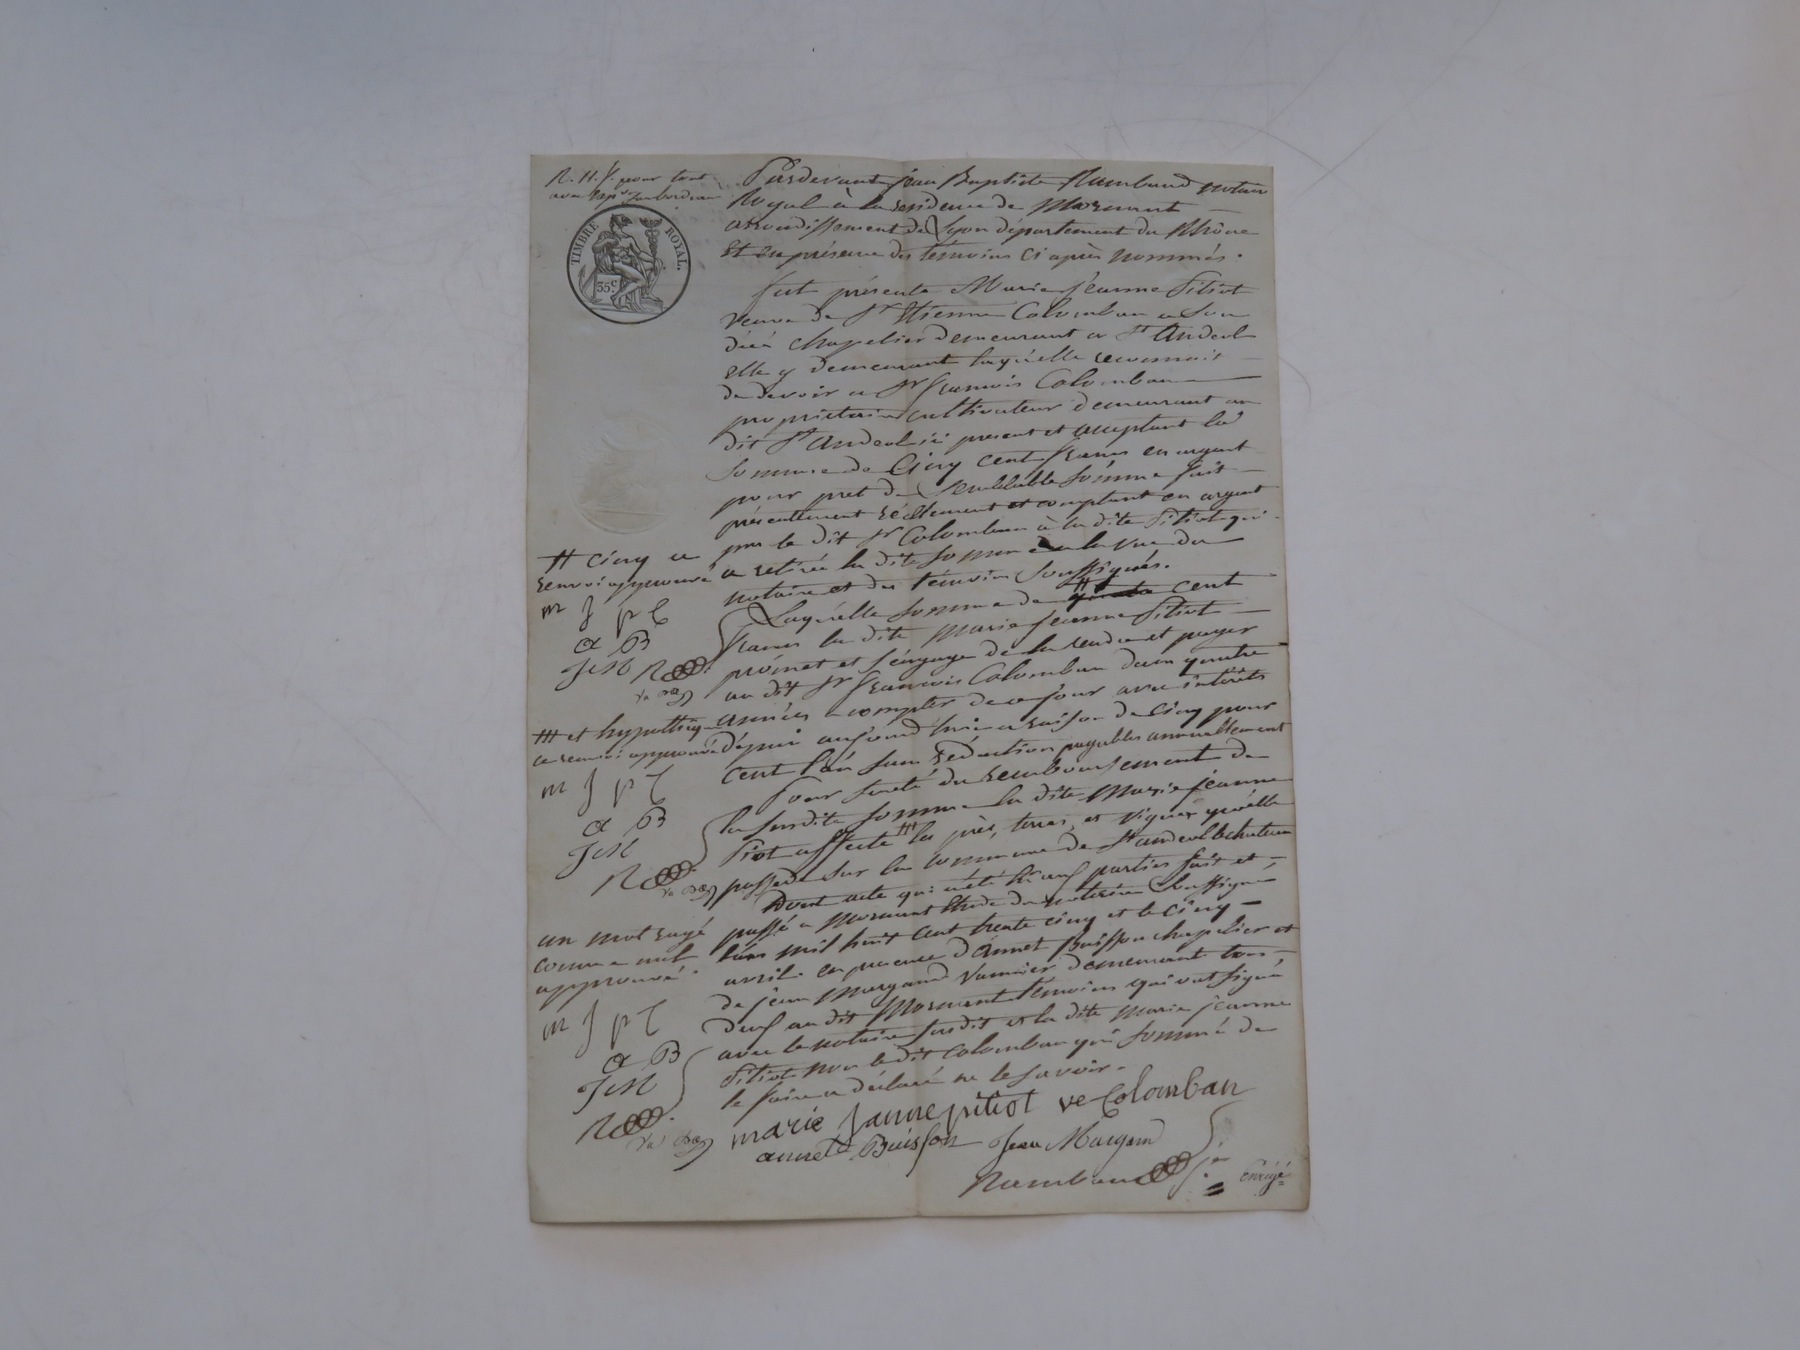 R. H. f. pour tout
avec rép. au bordereau
TIMBRE ROYAL.
35 c
Pardevant Jean Baptiste Rambaud notaire
Royal à la residence de Mornant
arrondissement de Lyon département du Rhône
Et en présence des témoins ci après nommés.
fut présente Marie Jeanne Pitiot
veuve de Sr Etienne Colomban a son
décé chapelier demeurant a St Andeol
elle y demeurant laquelle reconnait
de devoir a Sr francois Colomban
proprietaire cultivateur demeurant au
dit St Andeol ici present et acceptant la
somme de Cinq cent francs en argent
pour pret de semblable somme fait
présentement réellement et comptant en argent
par le dit Sr Colomban à la dite Pitiot qui
a retiré la dite somme a la vue du
notaire et des témoins soussignés.
Laquelle somme de # cent
francs la dite Marie Jeanne Pitiot
promet et s'engage de la rendre et payer
au dit Sr francois Colomban dans quatre
années a compter de ce jour avec intérêts
dépuis aujourd'hui a raison de Cinq pour
cent l'an sans réduction payables annuellement
Pour sureté du remboursement de
la susdite somme la dite Marie Jeanne
Pitiot affecte ## les près, terres, et vignes qu'elle
possede sur la commune de St andeol le chateau
Dont acte qui a été lu aux parties fait et
passé a Mornant Etude du notaire soussigné
l'an mil huit cent trente cinq et le cinq
avril. en presence d'Annet Buisson chapelier et
de jean Margand vannier demeurant tous
deux au dit Mornant temoins qui ont signé
avec le notaire susdit et la dite Marie jeanne
Pitiot non le dit Colomban qui sommé de
le faire a déclaré ne le savoir.
# cinq ce
renvoi approuvé
m J p C
a B
J M
R
## et hypothèque
ce renvoi approuvé
m J p C
a B
J M
R
un mot rayé
comme nul
approuvé.
m J p C
a B
J M
R
marie Janne pitiot ve Colomban
annet Buisson Jean Margand
Rambaud
Enrégé